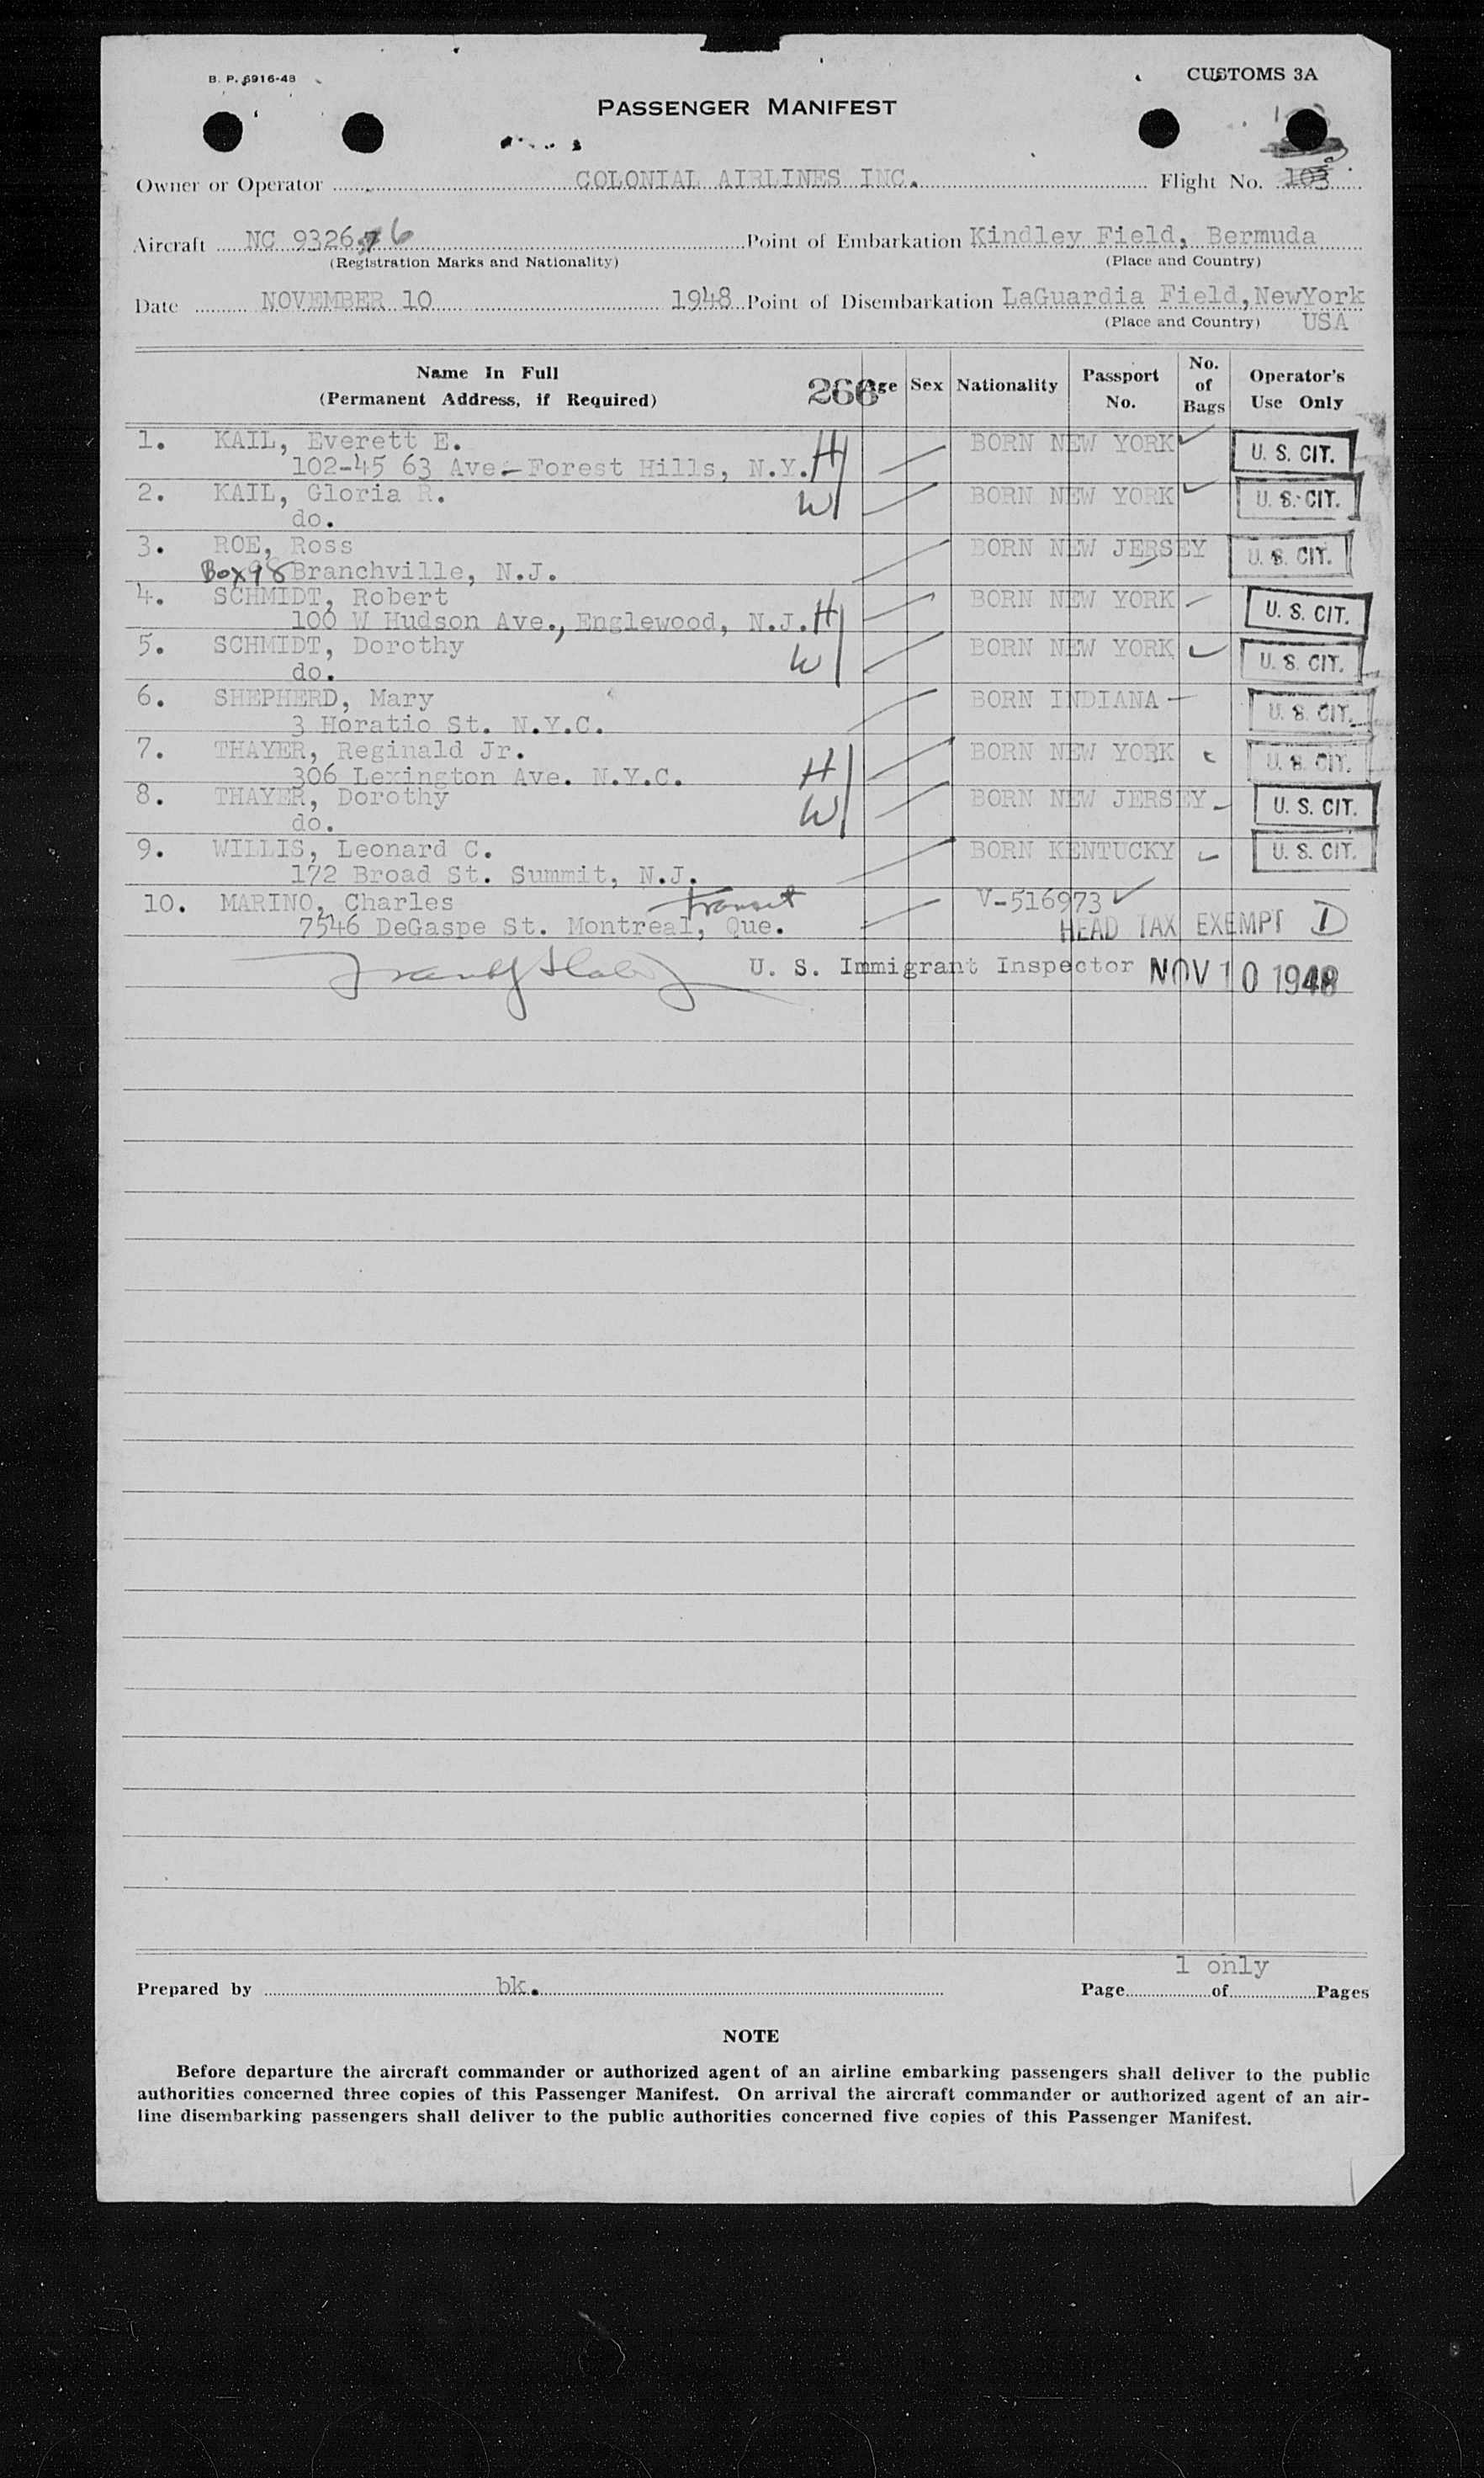 B. P. 6916-48
CUSTOMS 3A
PASSENGER MANIFEST
Owner or Operator COLONIAL AIRLINES INC. Flight No. 103
Aircraft NC 9326 76 Point of Embarkation Kindley Field, Bermuda
(Registration Marks and Nationality) (Place and Country)
Date NOVEMBER 10 1948 Point of Disembarkation LaGuardia Field, NewYork
(Place and Country) USA
Name In Full (Permanent Address, if Required) 266 Age Sex Nationality Passport No. No. of Bags Operator's Use Only
1. KAIL, Everett E. H BORN NEW YORK U. S. CIT.
102-45 63 Ave.- Forest Hills, N.Y.
2. KAIL, Gloria R. W BORN NEW YORK U. S. CIT.
do.
3. ROE, Ross BORN NEW JERSEY U. S. CIT.
Box 98 Branchville, N.J.
4. SCHMIDT, Robert BORN NEW YORK U. S. CIT.
100 W Hudson Ave., Englewood, N.J. H
5. SCHMIDT, Dorothy W BORN NEW YORK U. S. CIT.
do.
6. SHEPHERD, Mary BORN INDIANA U. S. CIT.
3 Horatio St. N.Y.C.
7. THAYER, Reginald Jr. BORN NEW YORK U. S. CIT.
306 Lexington Ave. N.Y.C. H
8. THAYER, Dorothy W BORN NEW JERSEY U. S. CIT.
do.
9. WILLIS, Leonard C. BORN KENTUCKY U. S. CIT.
172 Broad St. Summit, N.J.
10. MARINO, Charles transit V-516973
7546 DeGaspe St. Montreal, Que. HEAD TAX EXEMPT D
U. S. Immigrant Inspector NOV 10 1948
1 only
Prepared by bk. Page of Pages
NOTE
Before departure the aircraft commander or authorized agent of an airline embarking passengers shall deliver to the public
authorities concerned three copies of this Passenger Manifest. On arrival the aircraft commander or authorized agent of an air-
line disembarking passengers shall deliver to the public authorities concerned five copies of this Passenger Manifest.